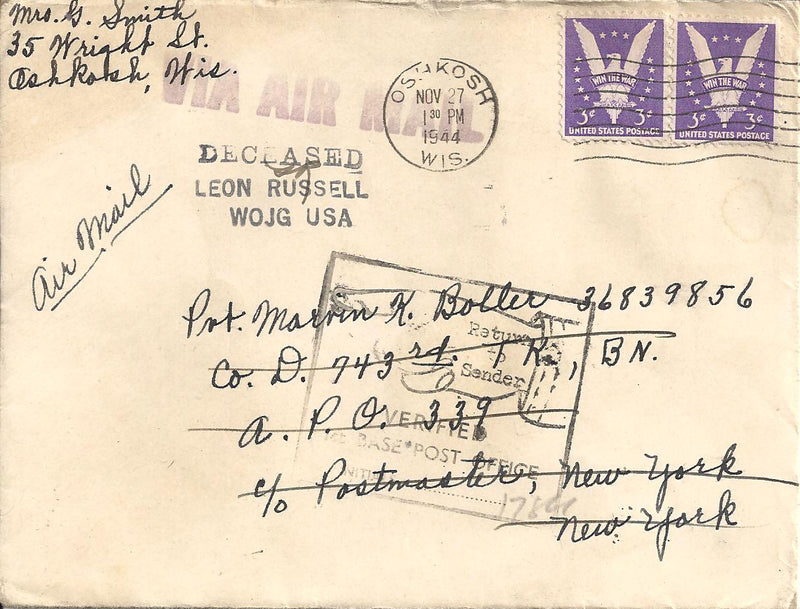 Mrs. G. Smith
35 Wright St.
Oshkosh, Wis.
VIA AIR MAIL
OSHKOSH
NOV 27
1 30 PM
1944
WIS.
WIN THE WAR
3¢ 3¢
UNITED STATES POSTAGE
WIN THE WAR
3¢ 3¢
UNITED STATES POSTAGE
DECEASED
LEON RUSSELL
WOJG USA
Air Mail
Pvt. Marvin K. Boller 36839856
Co. D. 743 rd. TK., BN.
A. P. O. 339
c/o Postmaster, New York
New York
Return
to
Sender
VERIFIED
1st BASE POST OFFICE